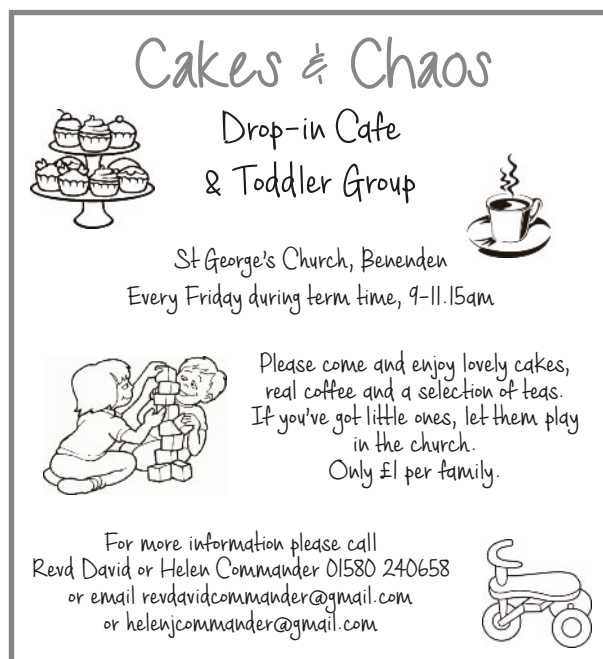 Cakes & Chaos
Drop-in Cafe
& Toddler Group
St George's Church, Benenden
Every Friday during term time, 9-11.15am
Please come and enjoy lovely cakes,
real coffee and a selection of teas.
If you've got little ones, let them play
in the church.
Only £1 per family.
For more information please call
Revd David or Helen Commander 01580 240658
or email revdavidcommander@gmail.com
or helenjcommander@gmail.com